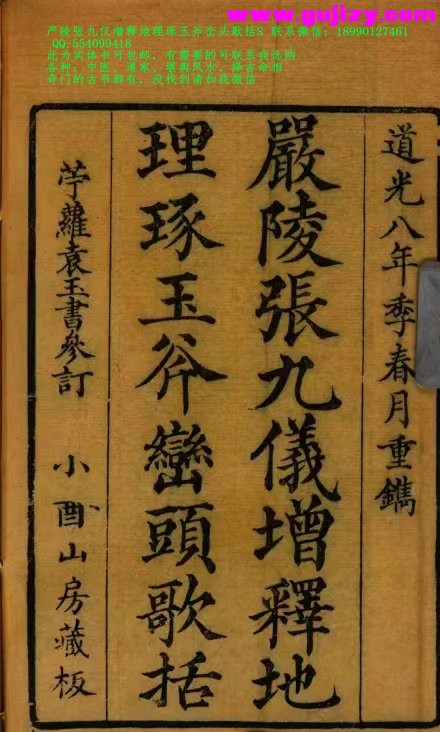 www.gujizy.com
严陵张九仪增释地理琢玉斧峦头歌括S 联系微信：18990127461
QQ:554099418
此为实体书可包邮，有需要的可联系我选购
各种：中医、道家、堪舆风水、择吉命相
奇门的古书都有，没找到请加我微信
道光八年季春月重鐫
嚴陵張九儀增釋地
理琢玉斧巒頭歌括
苧蘿袁玉書參訂
小酉山房藏板